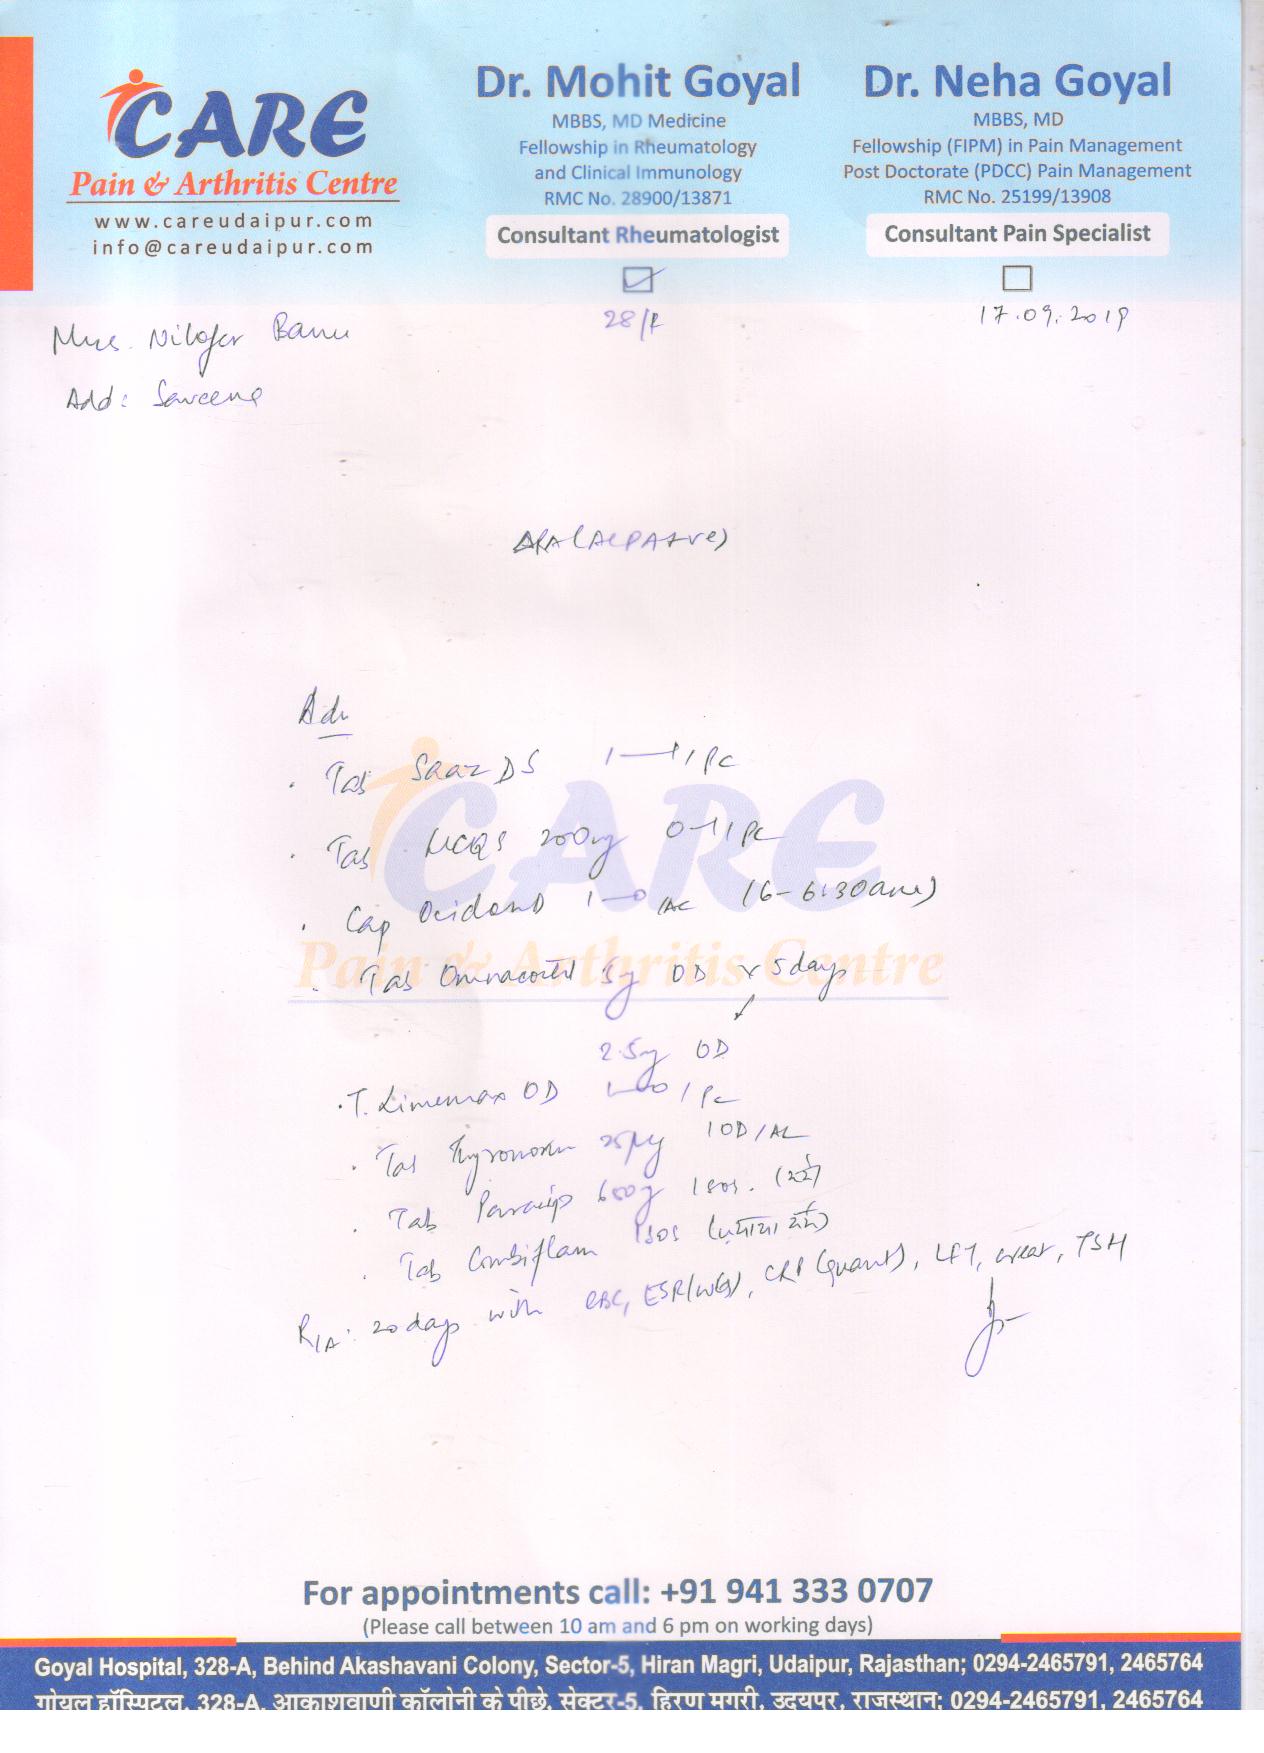 CARE
Pain & Arthritis Centre
www.careudaipur.com
info@careudaipur.com
Dr. Mohit Goyal
MBBS, MD Medicine
Fellowship in Rheumatology
and Clinical Immunology
RMC No. 28900/13871
Consultant Rheumatologist
Dr. Neha Goyal
MBBS, MD
Fellowship (FIPM) in Pain Management
Post Doctorate (PDCC) Pain Management
RMC No. 25199/13908
Consultant Pain Specialist
Mrs. Nilofer Banu 28/F 17.09.2019
Add:
Adv
CARE
Pain & Arthritis Centre
. Tab Saaz DS 1—1/PC
. Tab HCQS 200mg 0—1/PC
. Cap 1—0/AC (6-6:30am)
. Tab Omnacortil 5mg OD x 5days
2.5mg OD
. T. OD 1—0/PC
. Tab Thyronorm 25µg 1OD/AC
. Tab 650mg 1 sos. (दर्द)
. Tab Combiflam 1 sos
R/A: 20days with CBC, ESR(WG), CRP(quant), LFT, creat, TSH
For appointments call: +91 941 333 0707
(Please call between 10 am and 6 pm on working days)
Goyal Hospital, 328-A, Behind Akashavani Colony, Sector-5, Hiran Magri, Udaipur, Rajasthan; 0294-2465791, 2465764
गोयल हॉस्पिटल, 328-A, आकाशवाणी कॉलोनी के पीछे, सेक्टर-5, हिरण मगरी, उदयपुर, राजस्थान; 0294-2465791, 2465764